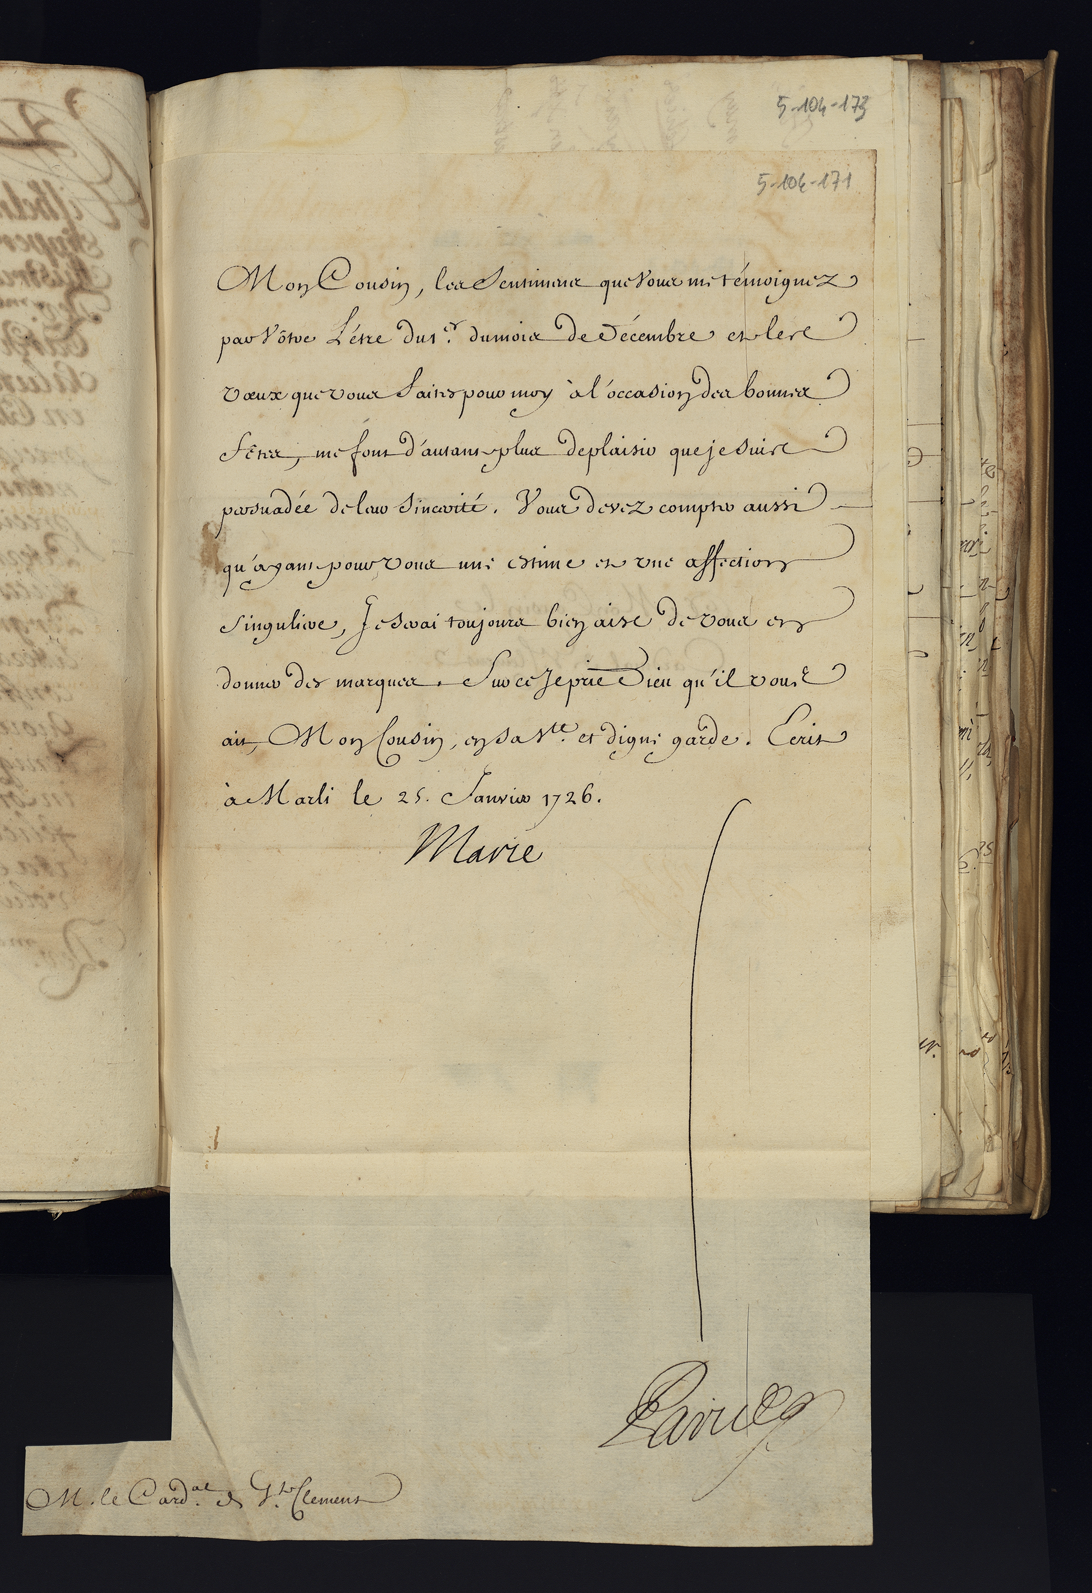 5-104-173
5-104-171
Mon Cousin, les Sentimens que Vous me témoignez
par Vôtre Léttre du 1.er du mois de Décembre et les
vœux que vous faites pour moy à l'occasion des bonnes
Fêtes, me font d'autant plus de plaisir que je suis
persuadée de leur Sincerité. Vous devez compter aussi
qu'ayant pour vous une estime et une affection
singuliere, Je serai toujours bien aise de vous en
donner des marques. Sur ce Je prie Dieu qu'il vous
ait, Mon Cousin, en sa Ste. et digne garde. Ecrit
à Marli le 25. Janvier 1726.
Marie
M. le Card.al de St. Clement